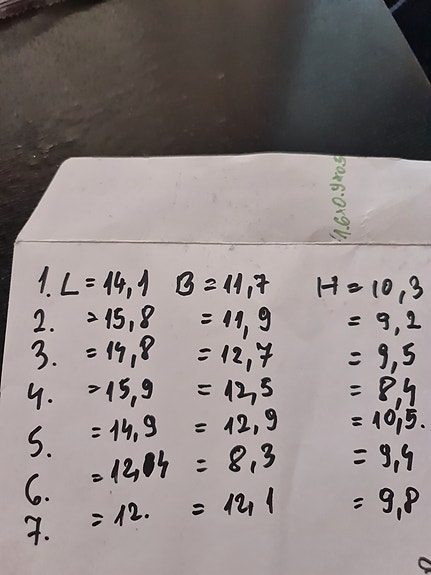 1. L = 14,1 B = 11,7 H = 10,3
2. = 15,8 = 11,9 = 9,2
3. = 14,8 = 12,7 = 9,5
4. = 15,9 = 12,5 = 8,4
5. = 14,9 = 12,9 = 10,5.
6. = 12,4 = 8,3 = 9,4
7. = 12. = 12,1 = 9,8